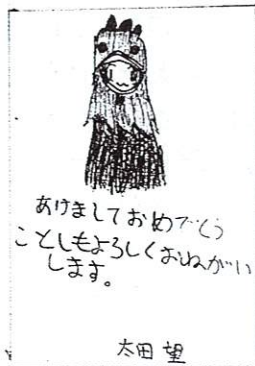 あけましておめでとう
ことしもよろしくおねがい
します。
太田 望